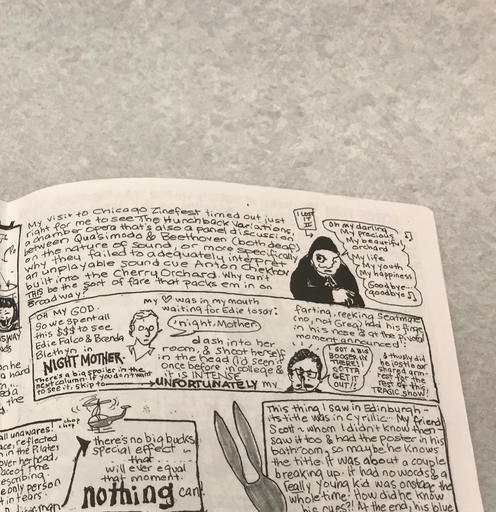 My visit to Chicago Zinefest timed out just
right for me to see The Hunchback Variations,
a chamber opera that's also a panel discussion
between Quasimodo & Beethoven (both deaf)
on the nature of sound, or more specifically
why they failed to adequately interpret
an unplayable sound cue Anton Chekhov
built into the Cherry Orchard. Why can't
THIS be the sort of fare that packs em in on
Broadway?
I LOST IT
Oh my darling
My precious,
My beautiful
orchard
My life
My youth
My happiness
Goodbye...
goodbye
OH MY GOD.
So we spent all
this $$ to see
Edie Falco & Brenda
Blethyn in
NIGHT MOTHER.
There's a big spoiler in the
next column. If you don't want
to see it, skip to
my ♡ was in my mouth
waiting for Edie to say:
'night, Mother
dash into her
room, & shoot herself
in the head (I'd seen it
once before in college &
it is INTENSE)
UNFORTUNATELY my
farting, reeking seatmate
(no, not Greg) had his fingers
in his nose @ the pivotal
moment & announced:
GOT A BIG
BOOGER IN
THERE
GOTTA
GET IT
OUT!!
& thusly did
he jostle our
shared arm-
rest for the
rest of this
TRAGIC SHOW!
chop
chop
there's no big bucks
special effect
that
will ever equal
that moment.
nothing can
This thing I saw in Edinburgh -
its title was in Cyrillic. My friend
Scott, whom I didn't know then
saw it too & had the poster in his
bathroom, so maybe he knows
the title. It was about a couple
breaking up. It had no words, a
really young kid was onstage the
whole time. How did he know
his cues?! At the end, his blue
all unawares!
ace, reflected
in the Plates
over her head,
only person
in tears.